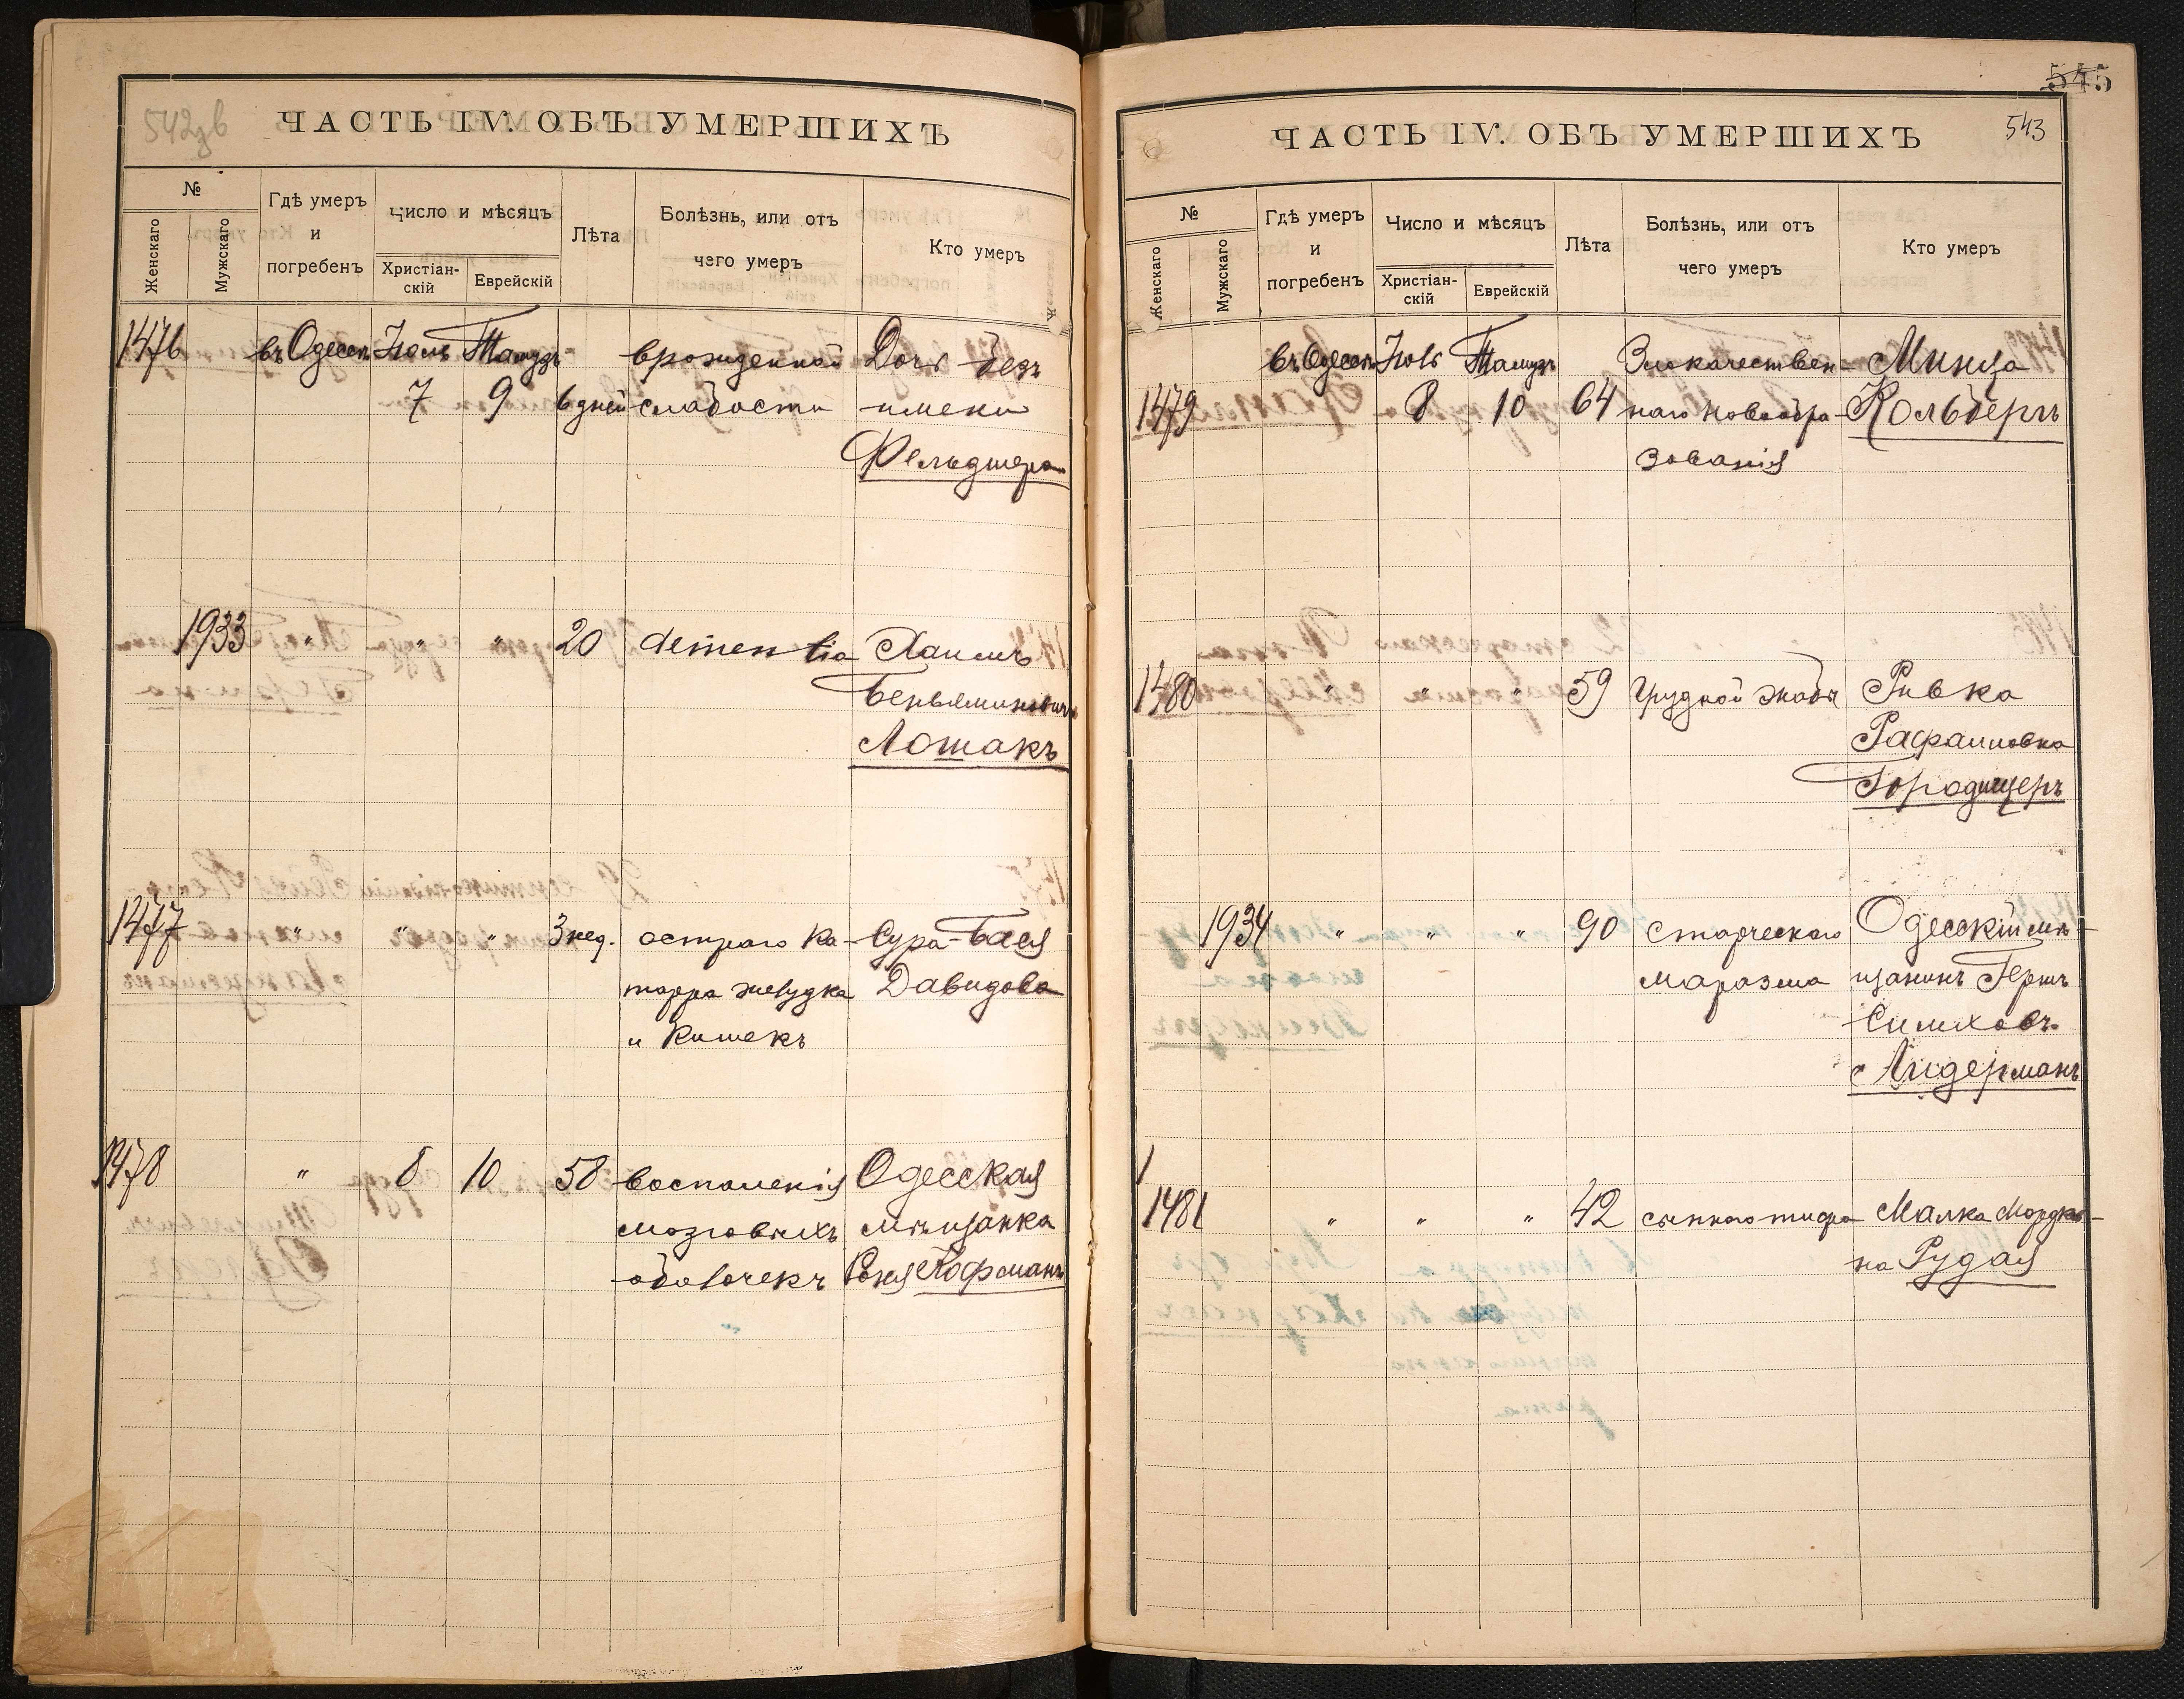 542 зв
ЧАСТЬ IV. ОБЪ УМЕРШИХЪ
№
Женскаго
Мужскаго
Гдѣ умеръ
и
погребенъ
Число и мѣсяцъ
Христіан-
скій
Еврейскій
Лѣта
Болѣзнь, или отъ
чего умеръ
Кто умеръ
1476 въ Одессѣ Іюль Тамузъ врожденной Дочь безъ
7 9 6 дней слабости имени
Фельдшеръ
1933 " " " 20 dementia Хаимъ
Беньяминовичъ
Лошакъ
1477 " " " 3 нед. остраго ка- Сура-Бася
тарра желудка Давидова
и кишекъ
1478 " 8 10 58 воспаленія Одесская
мозговыхъ мѣщанка
оболочекъ Соня Кофманъ
545
543
ЧАСТЬ IV. ОБЪ УМЕРШИХЪ
№
Женскаго
Мужскаго
Гдѣ умеръ
и
погребенъ
Число и мѣсяцъ
Христіан-
скій
Еврейскій
Лѣта
Болѣзнь, или отъ
чего умеръ
Кто умеръ
въ Одессѣ Іюль Тамузъ Злокачествен- Минца
1479 8 10 64 наго новообра- Кольберъ
зованія
1480 " " " 59 грудной жабы Ривка
Рафаиловна
Городищеръ
1934 " " " 90 старческаго Одесскій мѣ-
маразма щанинъ Гершъ
Симховъ
Лидерманъ
1481 " " " 42 сыпного тифа Малка Мордко-
на Рудая